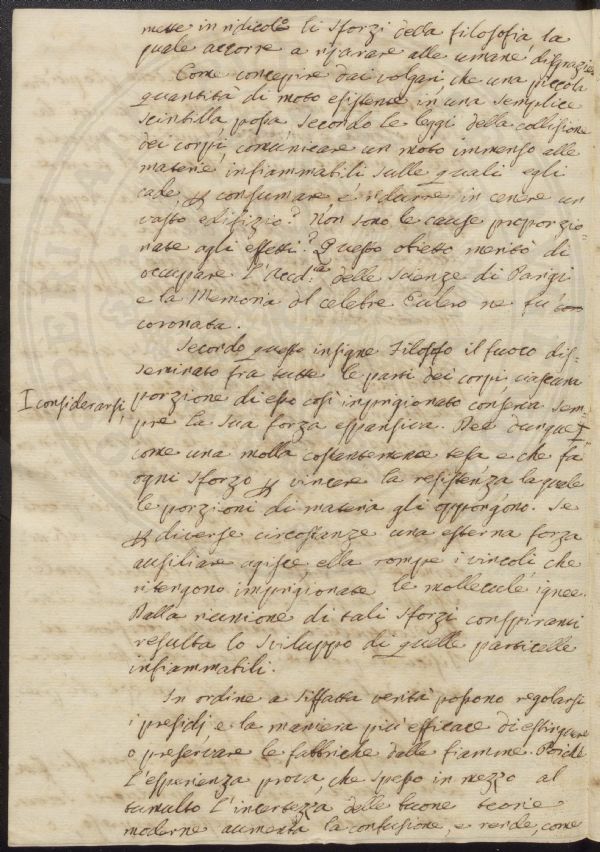 mette in ridicolo li sforzi della filosofia, la
quale accorre a riparare alle umane disgrazie
Come concepire dai volgari, che una piccola
quantità di moto esistente in una semplice
scintilla possa secondo le leggi della collisione
dei corpi, comunicare un moto immenso alle
materie infiammabili sulle quali egli
cade, p consumare, e ridurre in cenere un
vasto edifizio? Non sono le cause proporzio-
nate agli effetti? Questo obietto meritò di
occupare l'Accad.a delle Scienze di Parigi
e la Memoria del celebre Eulero ne fu
coronata.
Secondo questo insigne Filosofo il fuoco dis-
seminato fra tutte le parti dei corpi, ciascuna
porzione di esso così imprigionato conserva sem-
I considerarsi,
pre la sua forza espansiva. Dee dunque I
come una molla costantemente tesa e che fa
ogni sforzo p vincere la resistenza la quale
le porzioni di materia gli oppongono. Se
p diverse circostanze una esterna forza
ausiliare agisce, ella rompe i vincoli che
ritengono imprigionate le mollecule ignee.
Dalla riunione di tali sforzi conspiranti
resulta lo sviluppo di quelle particelle
infiammabili.
In ordine a siffatta verità possono regolarsi
i presidj, e la maniera più efficace di estinguere
o preservare le fabbriche dalle fiamme. Poichè
l'esperienza prova, che spesso in mezzo al
tumulto l'incertezza delle buone teorie
moderne aumenta la confusione, e rende, come